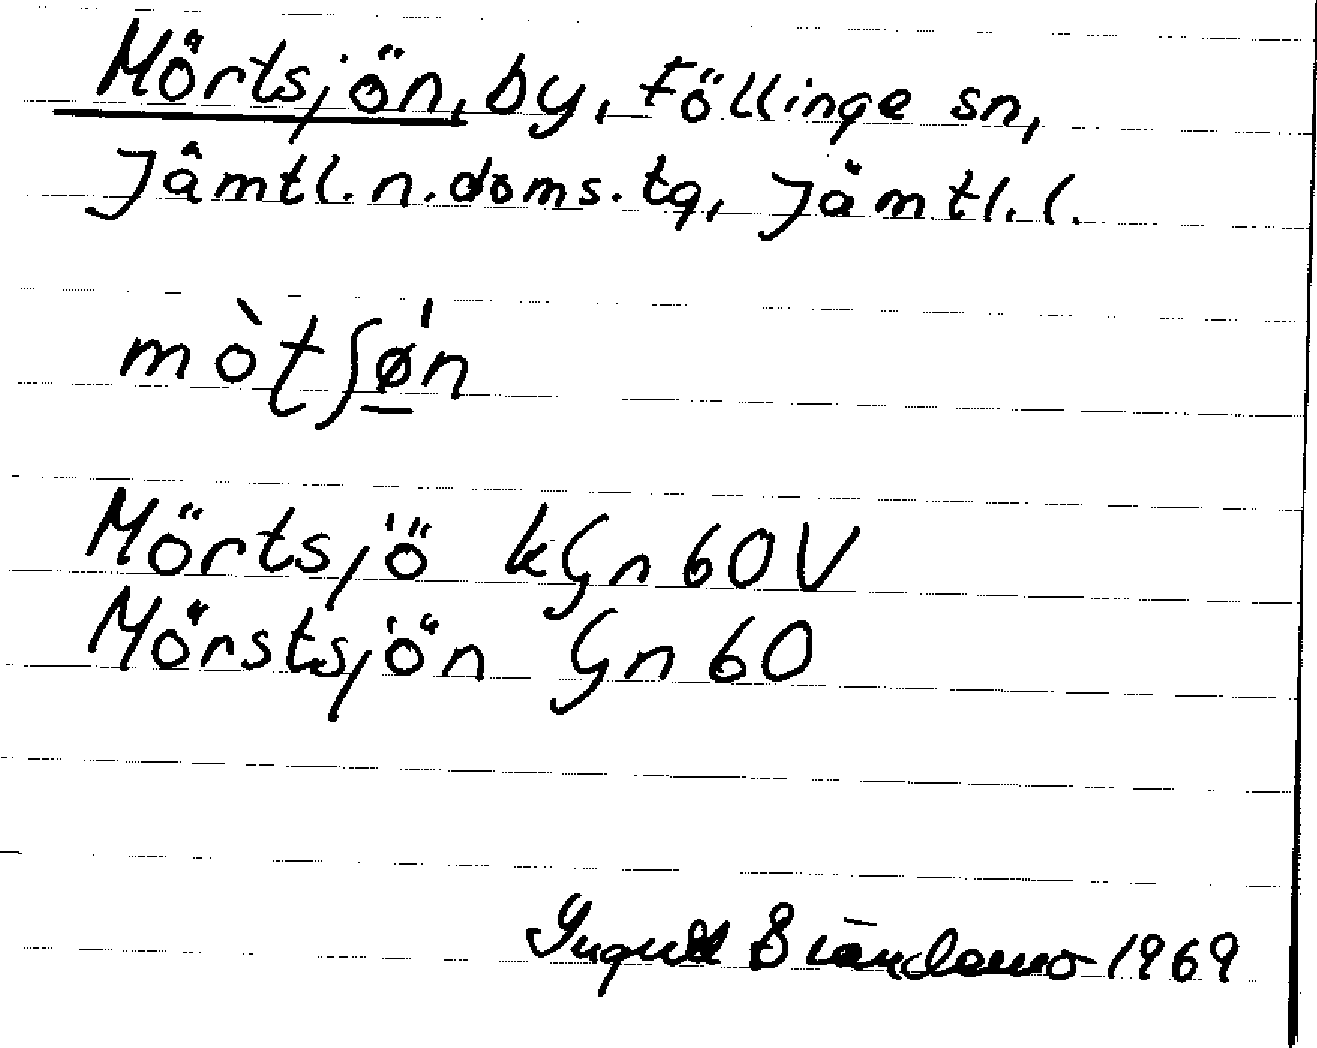 Mörtsjön, by, Föllinge sn,
Jämtl. n. doms. tg, Jämtl. l.
mòtʃǿ̲n
Mörtsjö kGn 60 V
Mörstsjön Gn 60
1969